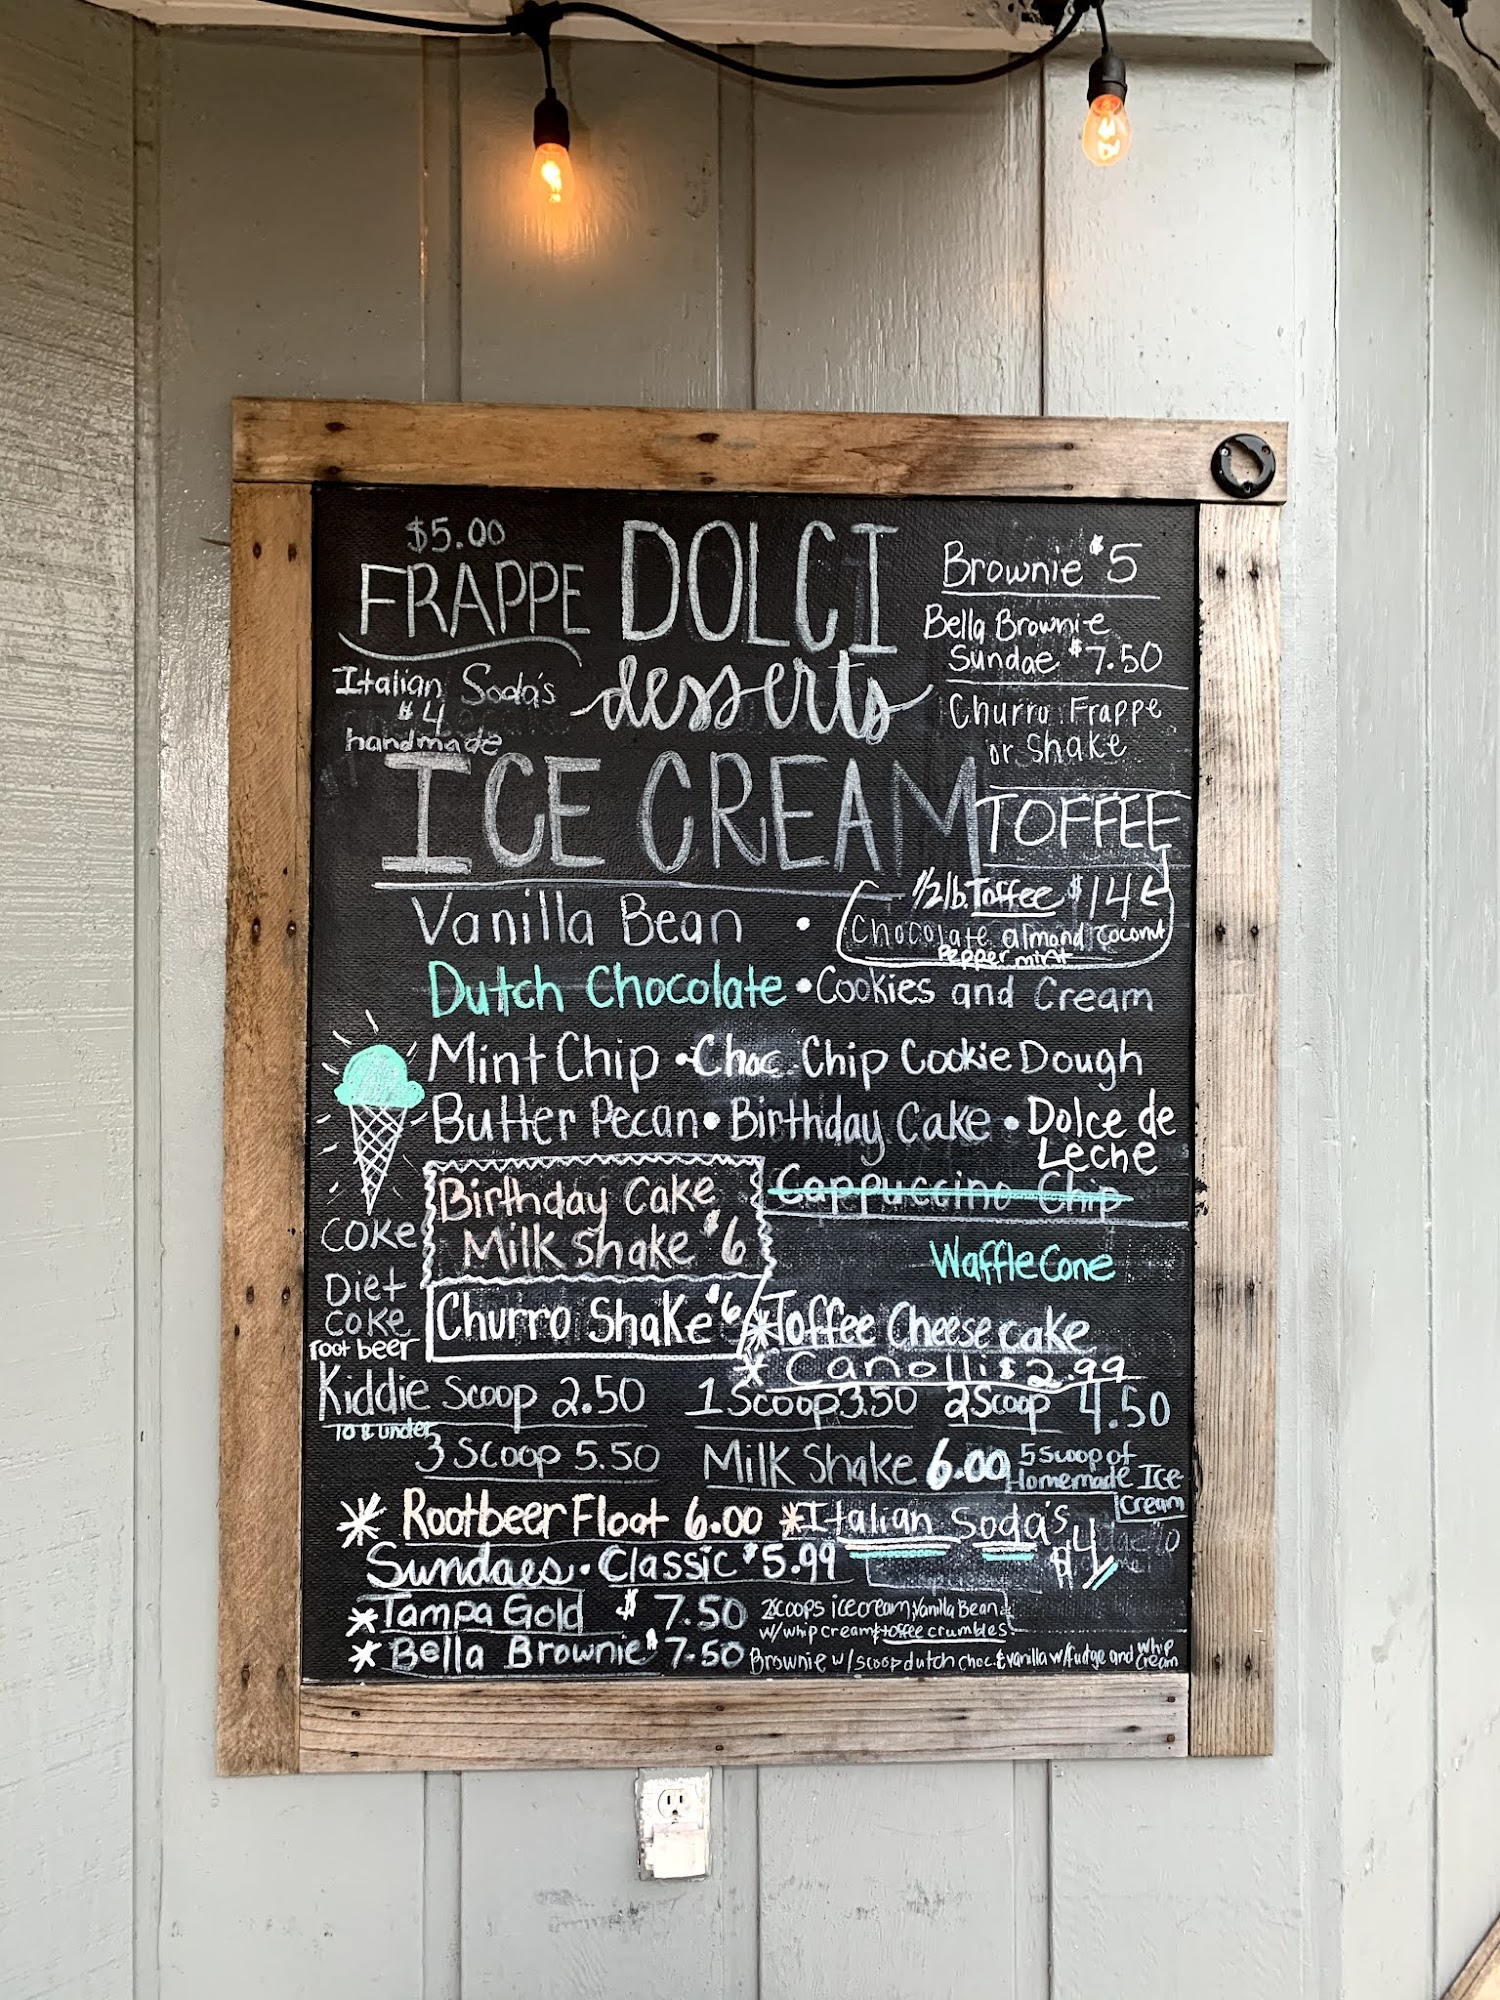 $5.00
FRAPPE
Italian Soda's
$4
handmade
DOLCI
desserts
Brownie $5
Bella Brownie
Sundae $7.50
Churro Frappe
or Shake
ICE CREAM
TOFFEE
1/2lb. Toffee $14
Chocolate almond coconut
Peppermint
Vanilla Bean •
Dutch Chocolate • Cookies and Cream
Mint Chip • Choc. Chip Cookie Dough
Butter Pecan • Birthday Cake • Dolce de
Leche
Cappuccino Chip
Birthday Cake
Milk Shake $6
Churro Shake $6
Coke
Diet
Coke
root beer
Waffle Cone
*Toffee Cheesecake
* Canolli $2.99
Kiddie Scoop 2.50
10 & under
1 Scoop 3.50 2 Scoop 4.50
3 Scoop 5.50
Milk Shake 6.00 5 Scoop of
Homemade Ice
Cream
* Rootbeer Float 6.00 *Italian Soda's
$4
Sundaes • Classic $5.99
*Tampa Gold $ 7.50 2scoops icecream, Vanilla Bean
w/whip cream & toffee crumbles
* Bella Brownie $7.50 Brownie w/scoop dutch choc. & vanilla w/fudge and whip
cream